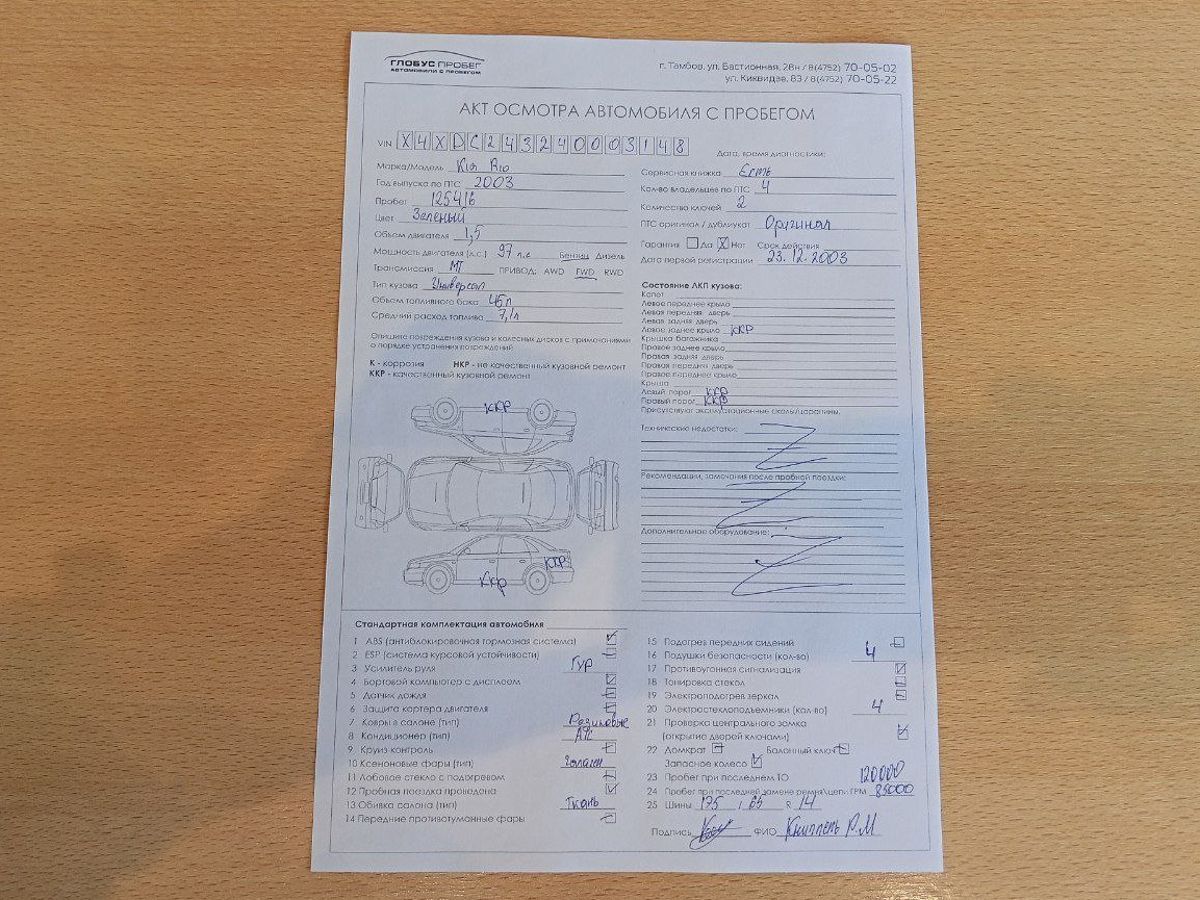 ГЛОБУС ПРОБЕГ
АВТОМОБИЛИ С ПРОБЕГОМ
г. Тамбов, ул. Бастионная, 28н / 8(4752) 70-05-02
ул. Киквидзе, 83 / 8(4752) 70-05-22
АКТ ОСМОТРА АВТОМОБИЛЯ С ПРОБЕГОМ
VIN X4XDC243240003148
Дата, время диагностики:
Марка/Модель Kia Rio
Год выпуска по ПТС 2003
Пробег 125416
Цвет Зеленый
Объем двигателя 1,5
Мощность двигателя (л.с.) 97 л.с Бензин Дизель
Трансмиссия МТ ПРИВОД: AWD FWD RWD
Тип кузова Универсал
Объем топливного бака 45 л
Средний расход топлива 7,1л
Сервисная книжка Есть
Кол-во владельцев по ПТС 4
Количество ключей 2
ПТС оригинал / дубликат Оригинал
Гарантия Да X Нет Срок действия
Дата первой регистрации 23.12.2003
Опишите повреждения кузова и колесных дисков с примечаниями
о порядке устранения повреждений
К - коррозия НКР - не качественный кузовной ремонт
ККР - качественный кузовной ремонт
ККР
ККР
ККР
Состояние ЛКП кузова:
Капот
Левое переднее крыло
Левая передняя дверь
Левая задняя дверь
Левое заднее крыло ККР
Крышка багажника
Правое заднее крыло
Правая задняя дверь
Правая передняя дверь
Правое переднее крыло
Крыша
Левый порог ККР
Правый порог ККР
Присутствуют эксплуатационные сколы/царапины.
Технические недостатки:
Рекомендации, замечания после пробной поездки:
Дополнительное оборудование:
Стандартная комплектация автомобиля
1 ABS (антиблокировочная тормозная система)
2 ESP (система курсовой устойчивости)
3 Усилитель руля Гур
4 Бортовой компьютер с дисплеем
5 Датчик дождя
6 Защита картера двигателя
7 Ковры в салоне (тип) Резиновые
8 Кондиционер (тип) А/С
9 Круиз контроль
10 Ксеноновые фары (тип) Галоген
11 Лобовое стекло с подогревом
12 Пробная поездка проведена
13 Обивка салона (тип) Ткань
14 Передние противотуманные фары
15 Подогрев передних сидений
16 Подушки безопасности (кол-во) 4
17 Противоугонная сигнализация
18 Тонировка стекол
19 Электроподогрев зеркал
20 Электростеклоподъемники (кол-во) 4
21 Проверка центрального замка
(открытие дверей ключами)
22 Домкрат Балонный ключ
Запасное колесо
23 Пробег при последнем ТО 120000
24 Пробег при последней замене ремня/цепи ГРМ 85000
25 Шины 175 / 65 R 14
Подпись ФИО Книппель Р.М